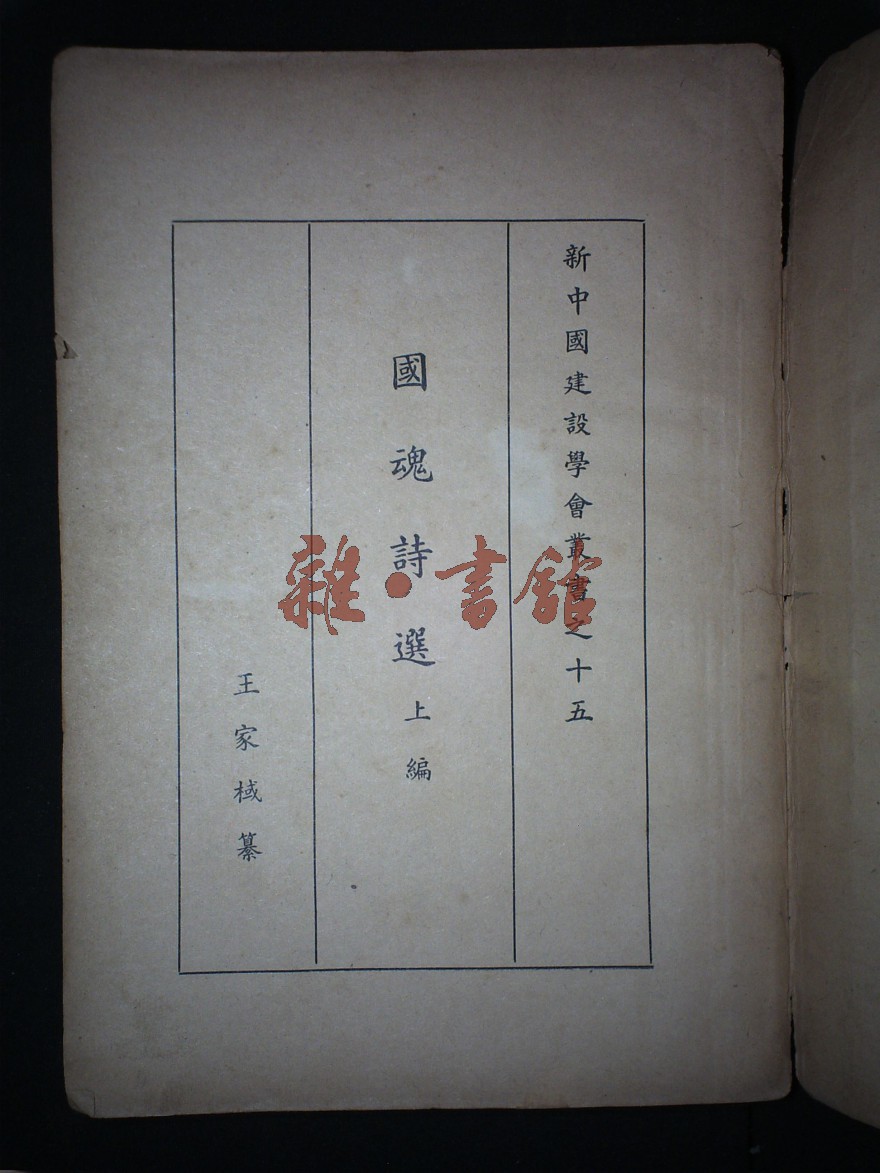 新中國建設學會叢書之十五
國魂詩選上編
王家棫纂
雜·書館